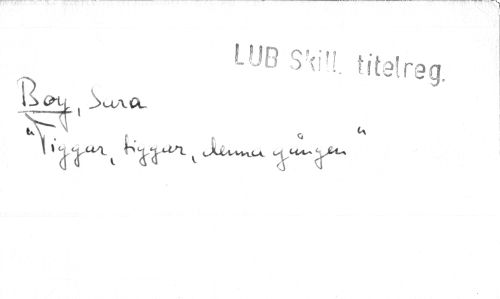 LUB Skill. titelreg.
Boy, Sura
"Tiggar, tiggar, denna gången"